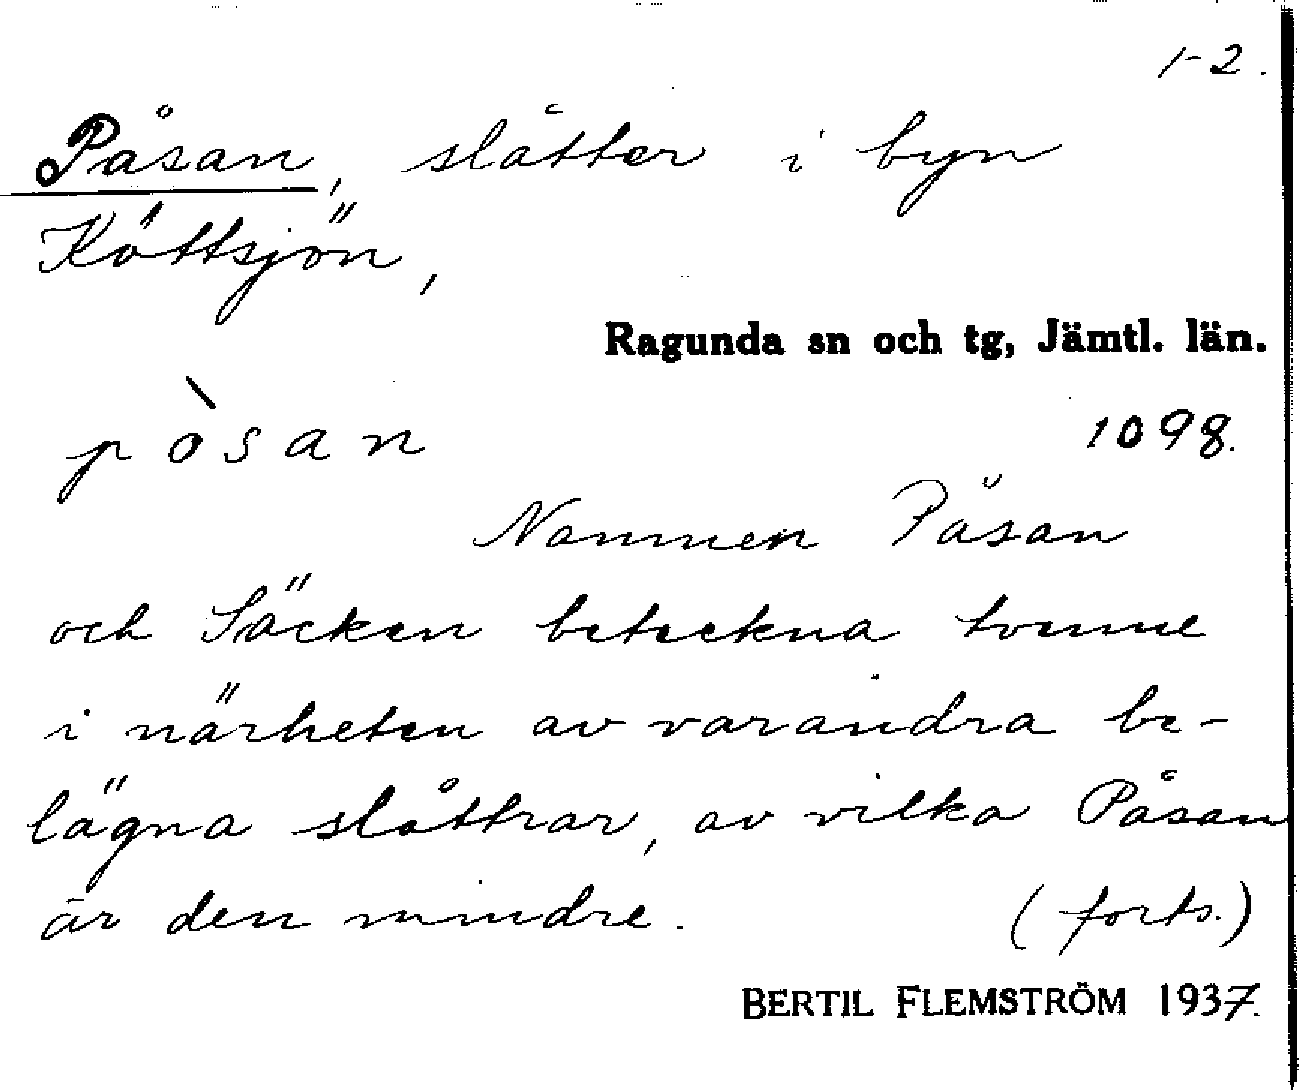 1-2.
Påsan, slåtter i byn
Köttsjön,
Ragunda sn och tg, Jämtl. län.
pòsan
1098.
Namnen Påsan
och Säcken beteckna tvenne
i närheten av varandra be-
lägna slåttrar, av vilka Påsan
är den mindre. (forts.)
BERTIL FLEMSTRÖM 1937.